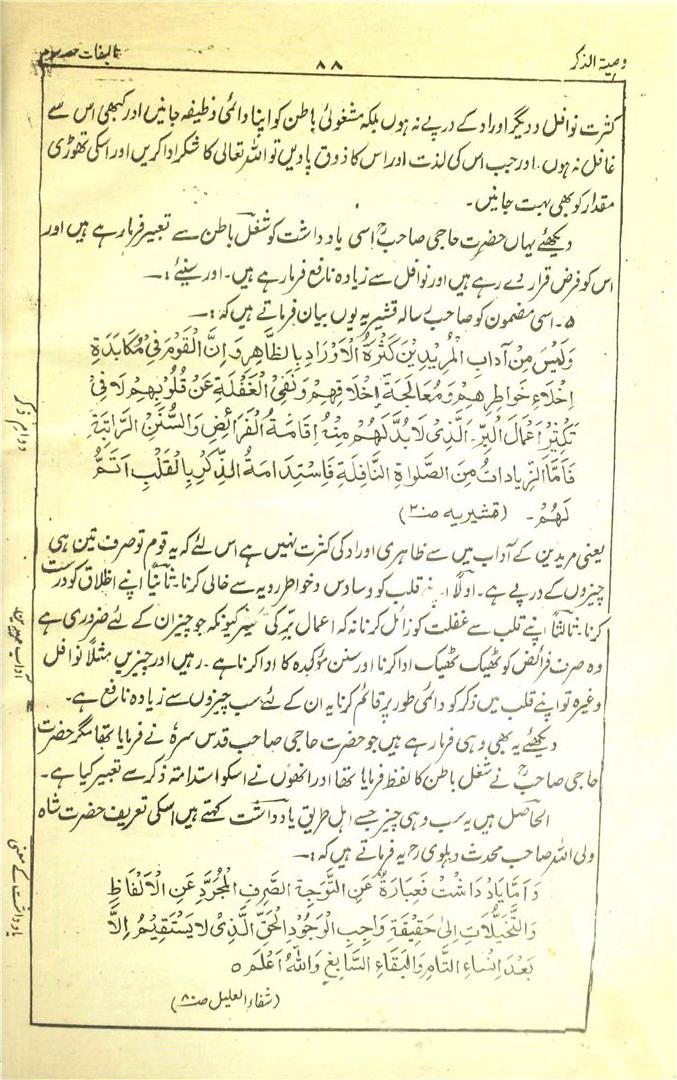 وصیۃ الذکر
۸۸
تالیفات حصہ سوم
کثرت نوافل و دیگر اوراد کے درپے نہ ہوں بلکہ مشغولئ باطن کو اپنا دائمی وظیفہ جانیں اور کبھی اس سے
غافل نہ ہوں۔ اور جب اس کی لذت اور اس کا ذوق پا دیں تو اللہ تعالی کا شکر ادا کریں اور اسکی تھوڑی
مقدار کو بھی بہت جانیں۔
دیکھئے یہاں حضرت حاجی صاحبؒ اسی یاد داشت کو شغل باطن سے تعبیر فرما رہے ہیں اور
اس کو فرض قرار دے رہے ہیں اور نوافل سے زیادہ نافع فرما رہے ہیں۔ اور سنیئے:۔
۵۔ اسی مضمون کو صاحب رسالہ قشیریہ یوں بیان فرماتے ہیں کہ:۔
وَلَیْسَ مِنْ آدَابِ الْمُرِیْدِیْنَ کَثْرَۃُ الْاَوْرَادِ بِالظَّاهِرِ وَاِنَّ الْقَوْمَ فِیْ مُکَابَدَۃِ
اِخْلَاءِ خَوَاطِرِهِمْ وَمُعَالَجَۃِ اِخْلَاقِهِمْ وَنَفْیِ الْغَفْلَۃِ عَنْ قُلُوْبِهِمْ لَا فِیْ
تَکْثِیْرِ اَعْمَالِ الْبِرِّ۔ اَلَّذِیْ لَابُدَّ لَهُمْ مِنْهُ اِقَامَۃُ الْفَرَائِضِ وَالسُّنَنِ الرَّاتِبَۃِ
فَاَمَّا الزِّیَادَاتُ مِنَ الصَّلٰواۃِ النَّافِلَۃِ فَاسْتِدَامَۃُ الذِّکْرِ بِالْقَلْبِ اَتَمُّ
لَهُمْ۔ (قشیریہ صـ۲۰)
یعنی مریدین کے آداب میں سے ظاہری اوراد کی کثرت نہیں ہے اس لئے کہ یہ قوم تو صرف تین ہی
چیزوں کے درپے ہے۔ اولاً اپنے قلب کو وساوس و خواطر ردیہ سے خالی کرنا۔ ثانیاً اپنے اخلاق کو درست
کرنا۔ ثالثاً اپنے قلب سے غفلت کو زائل کرنا نہ کہ اعمال بر کی کیونکہ جو چیز ان کے لئے ضروری ہے
وہ صرف فرائض کو ٹھیک ٹھیک ادا کرنا اور سنن مؤکدہ کا ادا کرنا ہے۔ رہیں اور چیزیں مثلاً نوافل
وغیرہ تو اپنے قلب میں ذکر کو دائمی طور پر قائم کرنا یہ ان کے لئے سب چیزوں سے زیادہ نافع ہے۔
دیکھئے یہ بھی وہی فرما رہے ہیں جو حضرت حاجی صاحب قدس سرہٗ نے فرمایا تھا مگر حضرت
حاجی صاحبؒ نے شغل باطن کا لفظ فرمایا تھا اور انھوں نے اسکو استدامۃ ذکر سے تعبیر کیا ہے۔
الحاصل ہیں یہ سب وہی چیز جسے اہل طریق یاد داشت کہتے ہیں اسکی تعریف حضرت شاہ
ولی اللہ صاحب محدث دہلوی رحمہ یہ فرماتے ہیں کہ:۔
وَاَمَّا یَادْ دَاشْتْ فَعِبَارَۃٌ عَنِ التَّوَجُّہِ الصَّرْفِ الْمُجَرَّدِ عَنِ الْاَلْفَاظِ
وَالتَّخَیُّلَاتِ اِلیٰ حَقِیْقَۃِ وَاجِبِ الْوُجُوْدِ الْحَقِّ الَّذِیْ لَا یَسْتَقِیْمُ اِلَّا
بَعْدَ الْفَنَاءِ التَّامِ وَالْبَقَاءِ السَّابِغِ وَاللہُ اَعْلَمُ ٥
(شفاء العلیل صـ۸۰)
دوام ذکر
آداب مریدین
یاد داشت کے معنی